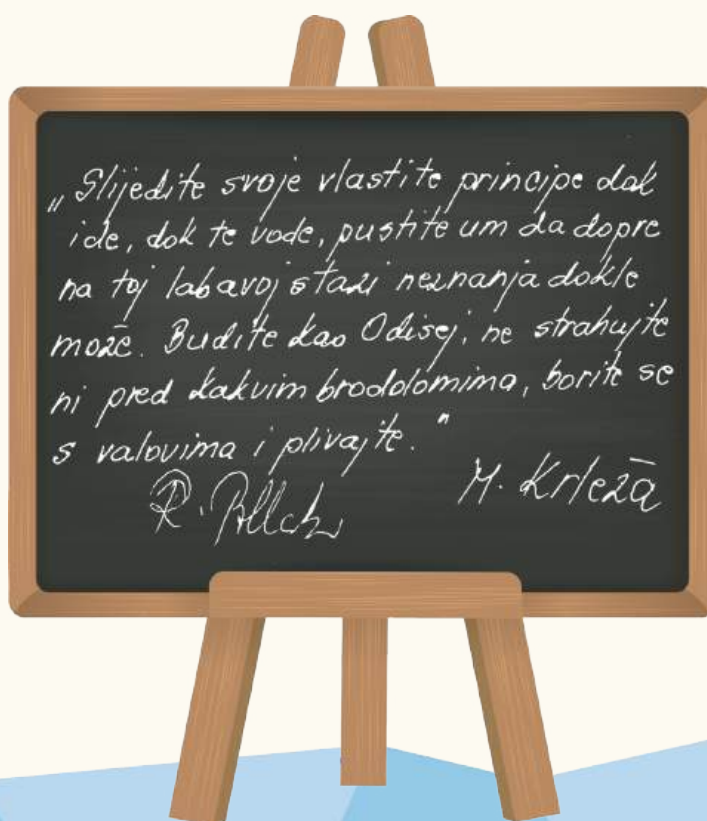 „Slijedite svoje vlastite principe dok
ide, dok te vode, pustite um da dopre
na toj labavoj stazi neznanja dokle
može. Budite kao Odisej, ne strahujte
ni pred kakvim brodolomima, borite se
s valovima i plivajte."
M. Krleža
R.